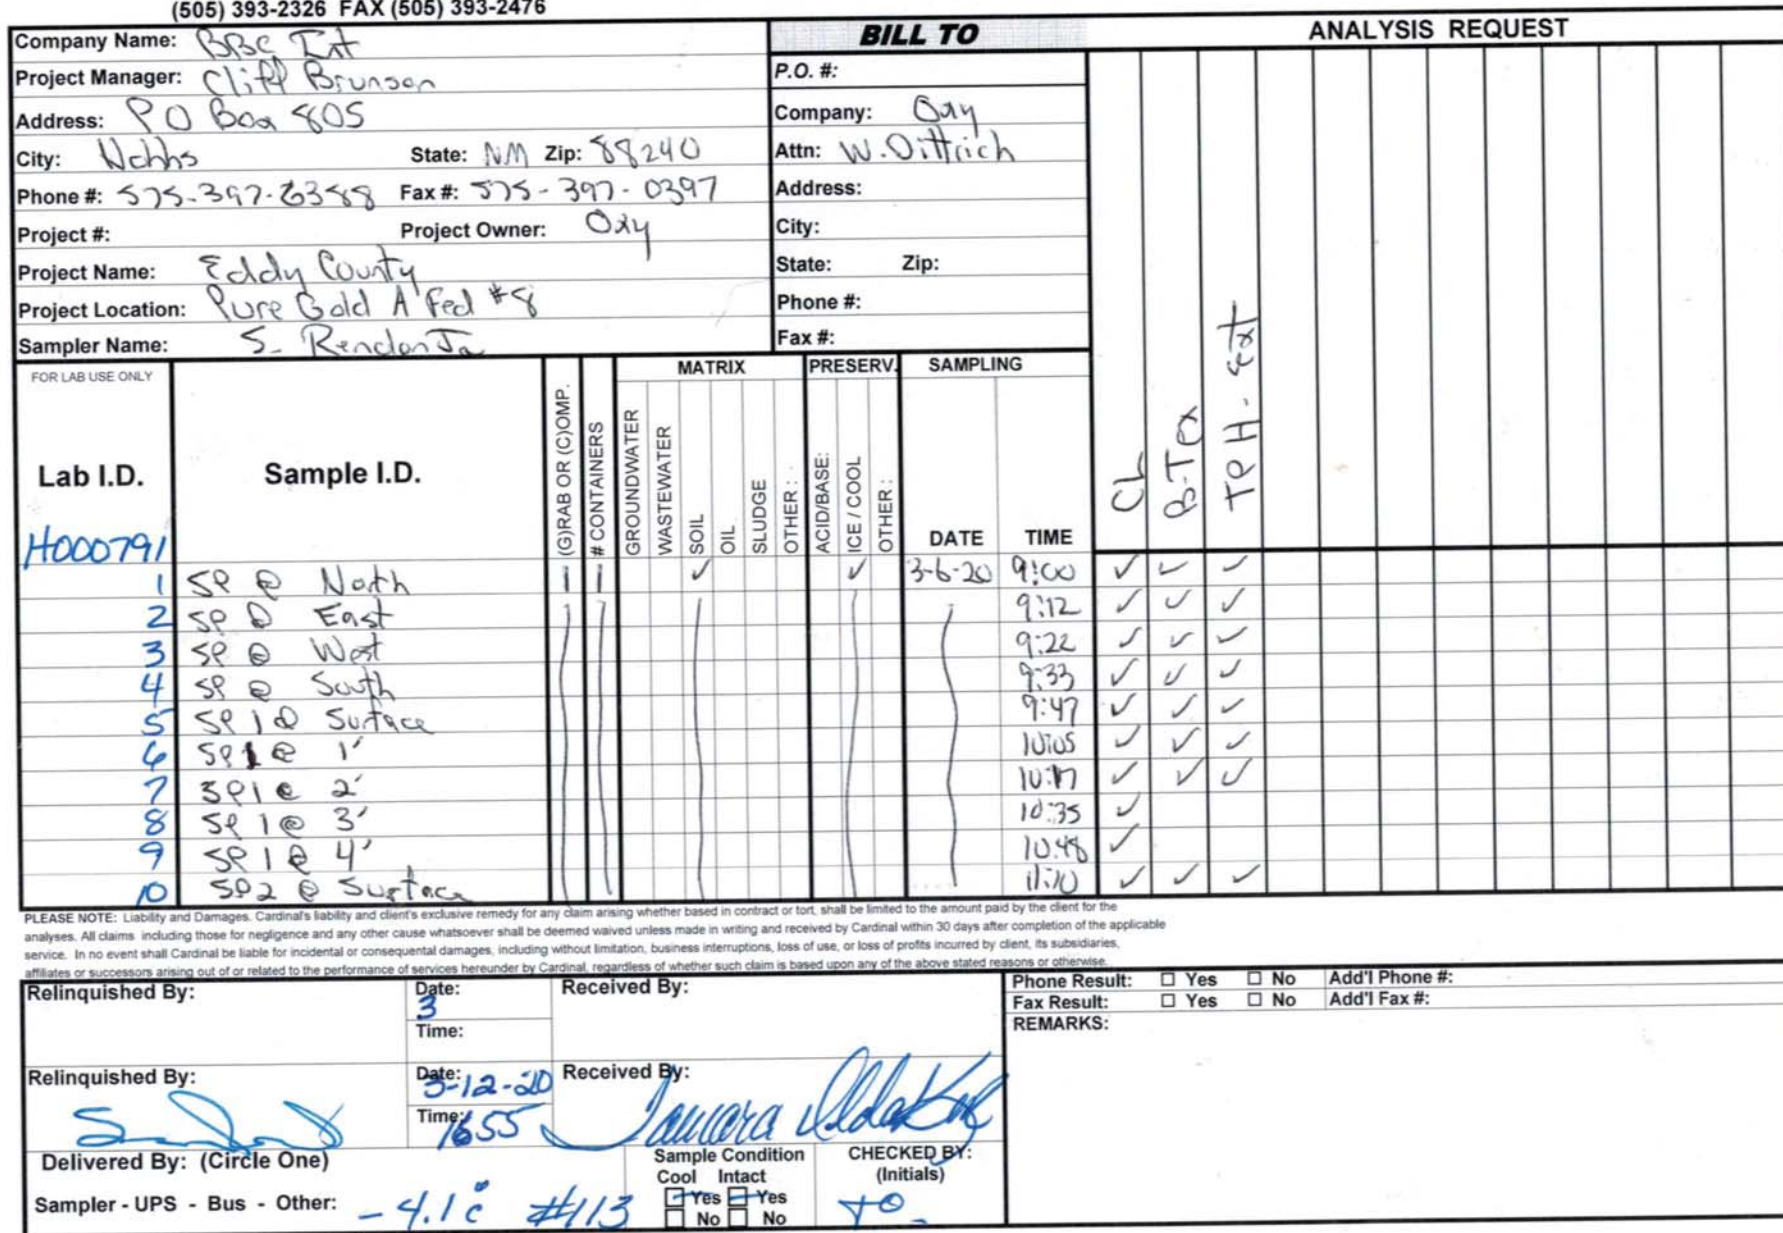 (505) 393-2326 FAX (505) 393-2476
Company Name: BBC Int
BILL TO
ANALYSIS REQUEST
Project Manager: Cliff Brunson
P.O. #:
Address: PO Box 805
Company: Oxy
City: Hobbs State: NM Zip: 88240
Attn: W. Dittrich
Phone #: 575-397-6388 Fax #: 575-397-0397
Address:
Project #: Project Owner: Oxy
City:
Project Name: Eddy County
State: Zip:
Project Location: Pure Gold A Fed #8
Phone #:
Sampler Name: S. Rendon Jr
Fax #:
FOR LAB USE ONLY
MATRIX PRESERV. SAMPLING
Lab I.D.
Sample I.D.
(G)RAB OR (C)OMP.
# CONTAINERS
GROUNDWATER
WASTEWATER
SOIL
OIL
SLUDGE
OTHER :
ACID/BASE:
ICE / COOL
OTHER :
DATE
TIME
CL
B-Tex
TPH - ext
H000791
1 SP @ North | | ✓ ✓ 3-6-20 9:00 ✓ ✓ ✓
2 SP @ East 9:12 ✓ ✓ ✓
3 SP @ West 9:22 ✓ ✓ ✓
4 SP @ South 9:33 ✓ ✓ ✓
5 SP 1 @ Surface 9:47 ✓ ✓ ✓
6 SP1 @ 1' 10:05 ✓ ✓ ✓
7 SP1 @ 2' 10:17 ✓ ✓ ✓
8 SP 1 @ 3' 10:35 ✓
9 SP 1 @ 4' 10:48 ✓
10 SP2 @ Surface 11:10 ✓ ✓ ✓
PLEASE NOTE: Liability and Damages. Cardinal's liability and client's exclusive remedy for any claim arising whether based in contract or tort, shall be limited to the amount paid by the client for the
analyses. All claims including those for negligence and any other cause whatsoever shall be deemed waived unless made in writing and received by Cardinal within 30 days after completion of the applicable
service. In no event shall Cardinal be liable for incidental or consequental damages, including without limitation, business interruptions, loss of use, or loss of profits incurred by client, its subsidiaries,
affiliates or successors arising out of or related to the performance of services hereunder by Cardinal, regardless of whether such claim is based upon any of the above stated reasons or otherwise.
Relinquished By:
Date: 3
Time:
Received By:
Phone Result: ☐ Yes ☐ No Add'l Phone #:
Fax Result: ☐ Yes ☐ No Add'l Fax #:
REMARKS:
Relinquished By:
Date: 3-12-20
Time: 1655
Received By: Tamara
Delivered By: (Circle One)
Sampler - UPS - Bus - Other: -4.1°c #113
Sample Condition
Cool Intact
Yes Yes
No No
CHECKED BY:
(Initials)
TO